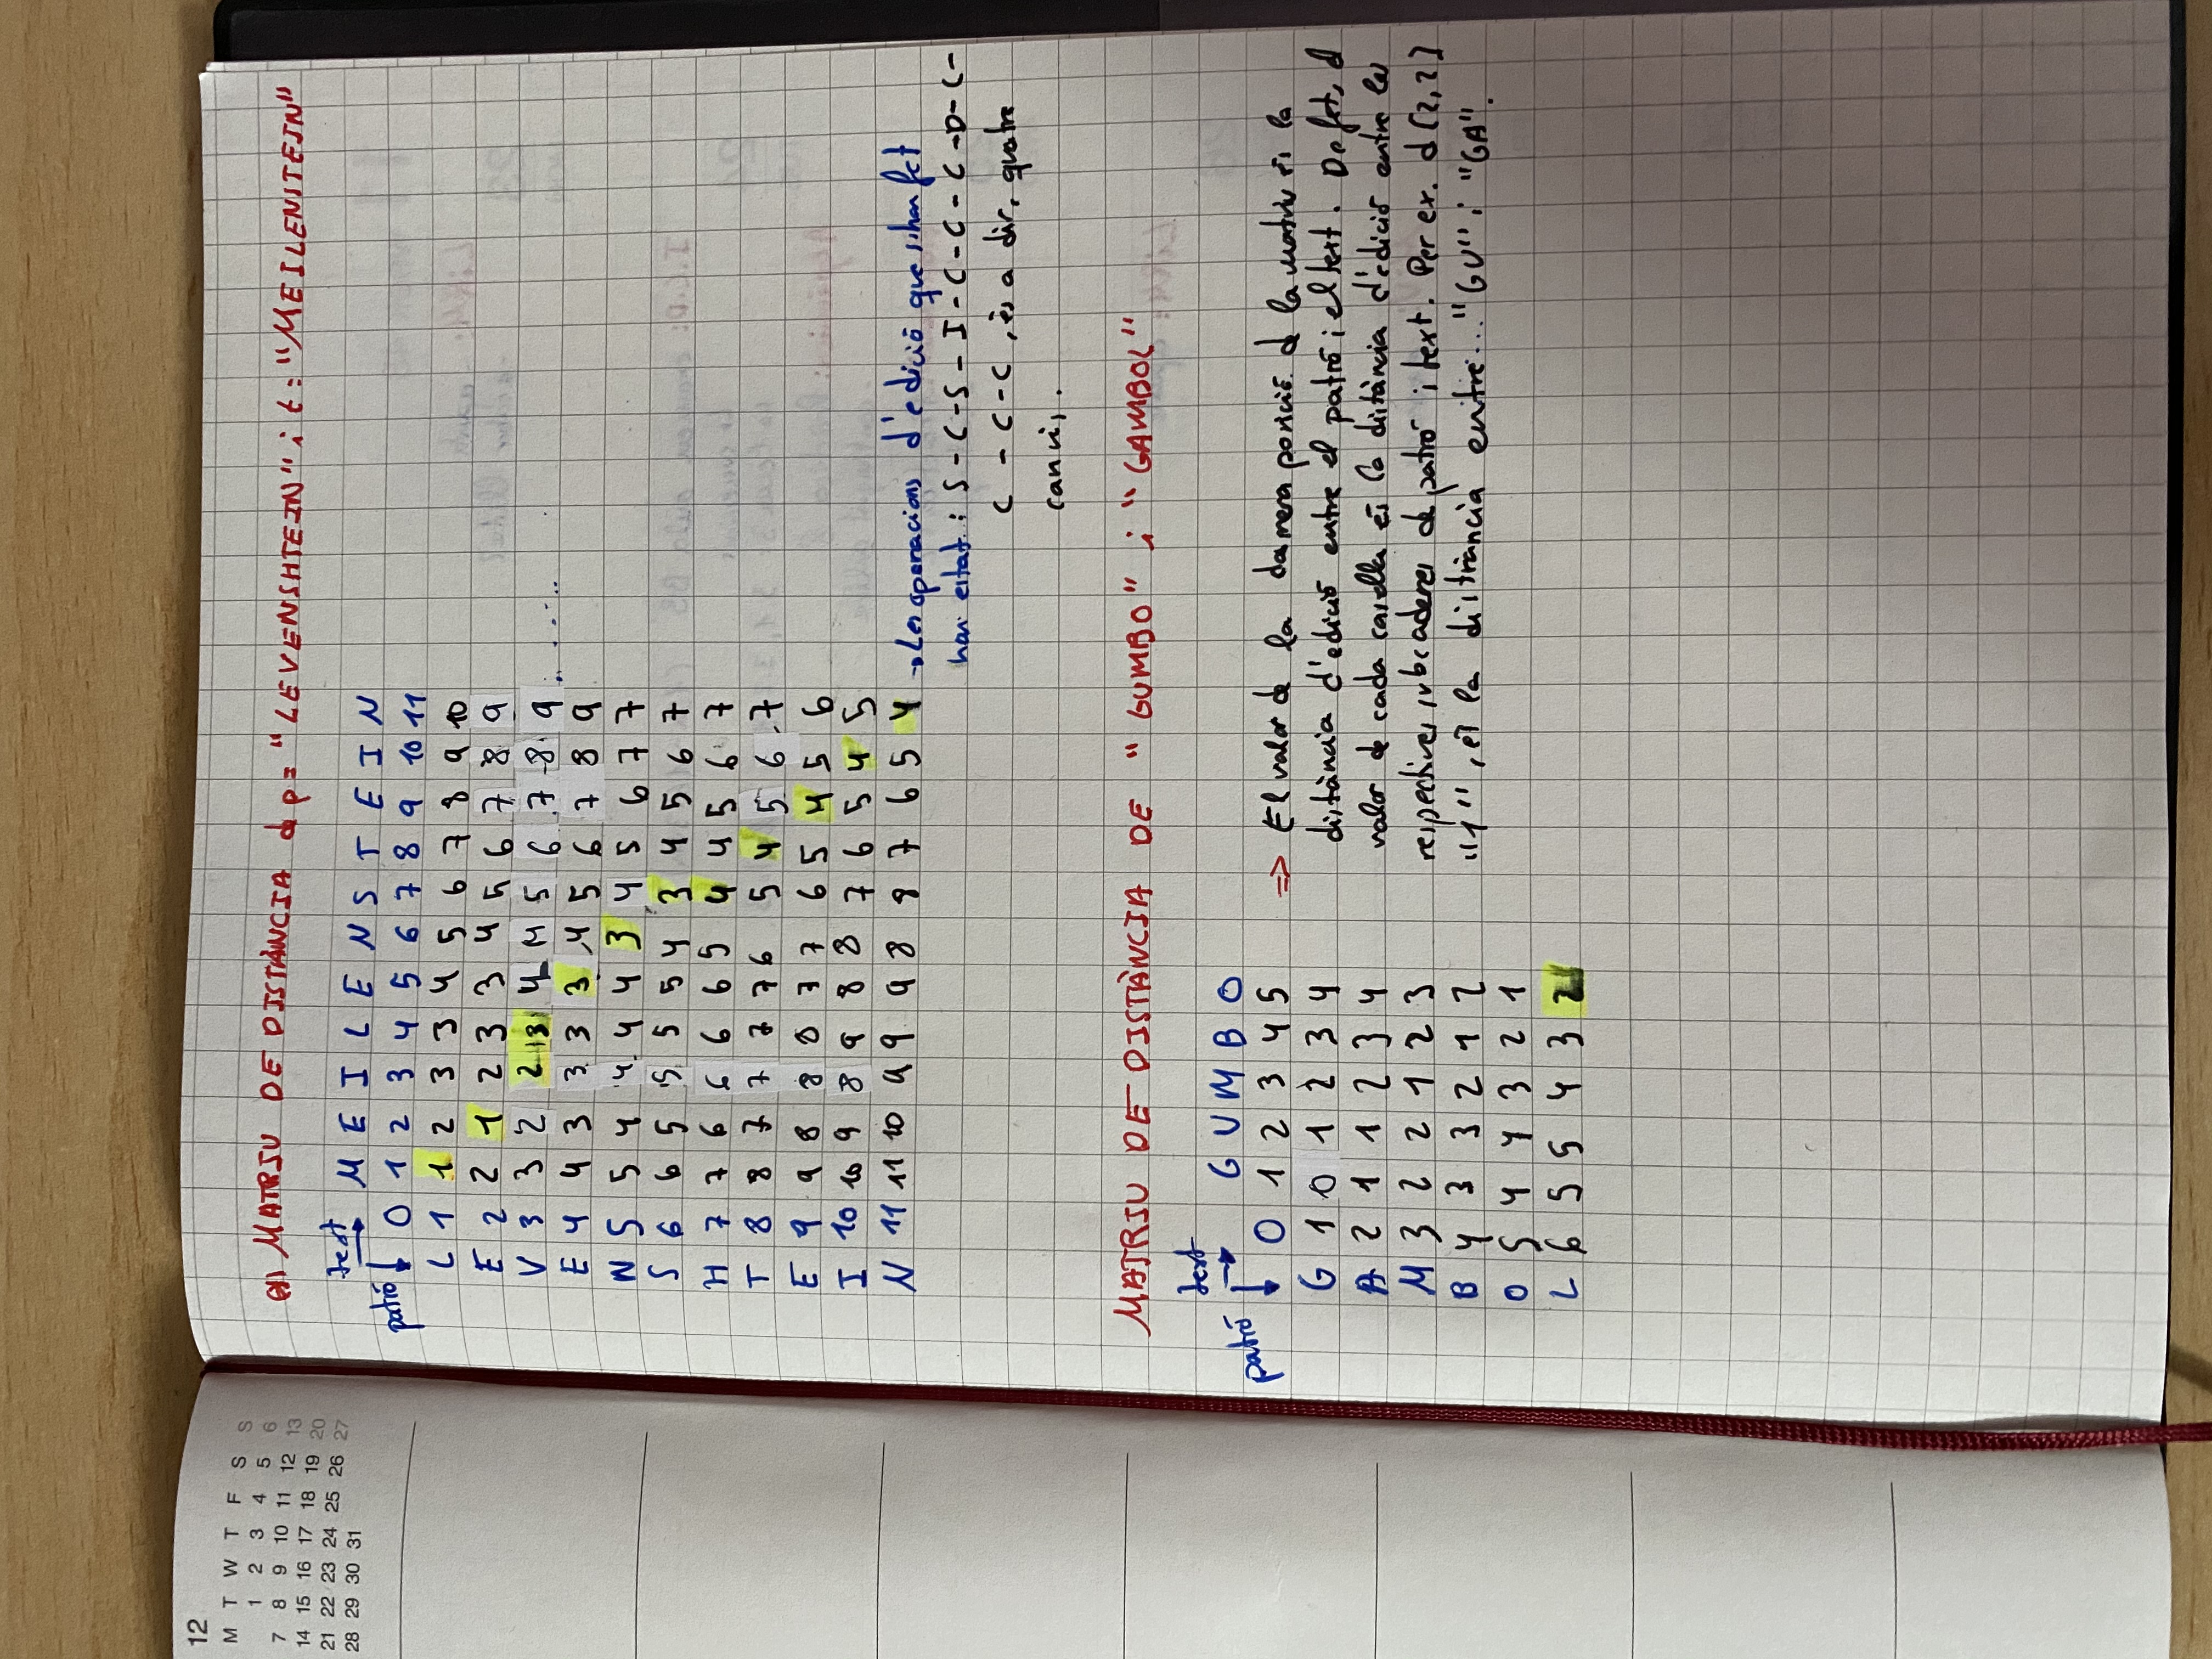 12
M T W T F S S
1 2 3 4 5 6
7 8 9 10 11 12 13
14 15 16 17 18 19 20
21 22 23 24 25 26 27
28 29 30 31
MATRIU DE DISTÀNCIA d p = "LEVENSHTEIN" i t = "MEILENSTEIN"
text
M E I L E N S T E I N
patró 0 1 2 3 4 5 6 7 8 9 10 11
L 1 1 2 3 3 4 5 6 7 8 9 10
E 2 2 1 2 3 3 4 5 6 7 8 9
V 3 3 2 2 3 4 4 5 6 7 8 9
E 4 4 3 3 3 3 4 5 6 7 8 9
N 5 5 4 4 4 4 3 4 5 6 7 7
S 6 6 5 5 5 5 4 3 4 5 6 7
H 7 7 6 6 6 6 5 4 4 5 6 7
T 8 8 7 7 7 7 6 5 4 5 6 7
E 9 9 8 8 8 7 7 6 5 4 5 6
I 10 10 9 8 9 8 8 7 6 5 4 5
N 11 11 10 9 9 9 8 8 7 6 5 4 → Les operacions d'edició que s'han fet
han estat: S - C - S - I - C - C - C - D - C -
C - C - C, és a dir, quatre
canvis.
MATRIU DE DISTÀNCIA DE "GUMBO" i "GAMBOL"
text
patró G U M B O
0 1 2 3 4 5 ⇒ El valor de la darrera posició d la matriu és la
G 1 0 1 2 3 4 distància d'edició entre el patró i el text. De fet, el
A 2 1 1 2 3 4 valor de cada casella és la distància d'edició entre les
M 3 2 2 1 2 3 respectives subcadenes de patró i text. Per ex. d[2,2]
B 4 3 3 2 1 2 "1", és la distància entre... "GU" i "GA".
O 5 4 4 3 2 1
L 6 5 5 4 3 2